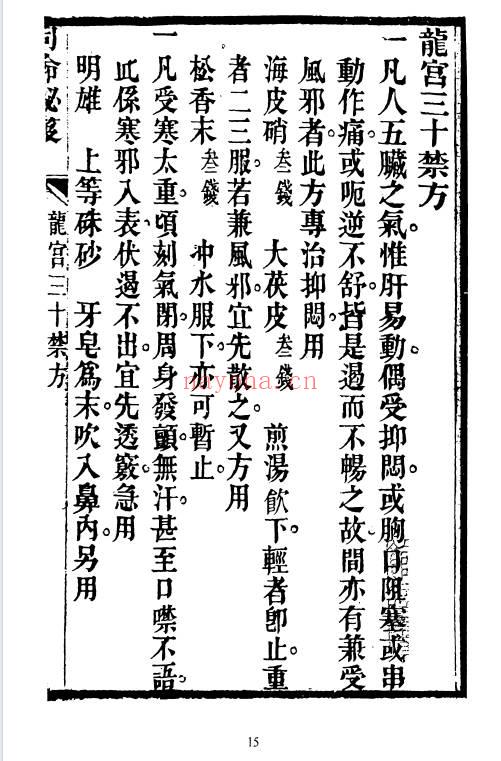 龍宮三十禁方
一凡人五臟之氣惟肝易動偶受抑悶或胸口阻塞或串
動作痛或呃逆不舒皆是遏而不暢之故間亦有兼受
風邪者此方專治抑悶用
海皮硝 叁錢 大茯皮 叁錢 煎湯飲下輕者卽止重
者二三服若兼風邪宜先散之又方用
松香末 叁錢 冲水服下亦可暫止
一凡受寒太重頃刻氣閉周身發顫無汗甚至口噤不語
此係寒邪入表伏遏不出宜先透竅急用
明雄 上等硃砂 牙皂爲末吹入鼻內另用
司命秘旨 龍宮三十禁方
nayona.cn
15